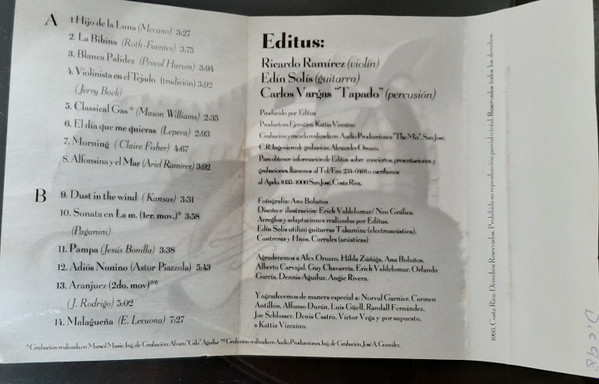 A
1 Hijo de la Luna (Mecano) 3:27
2. La Bikina (Roth-Fuentes) 3:75
3. Blanca Palidez (Procol Harum) 3:94
4. Violinista en el Tejado (tradición) 3:92
(Jerry Bock)
5. Classical Gas * (Mason Williams) 2:35
6. El día que me quieras (Lepera) 2:93
7. Morning (Claire Fisher) 4:67
8. Alfonsina y el Mar (Ariel Ramírez) 3:92
B
9. Dust in the wind (Kansas) 3:31
10. Sonata en La m. (1er. mov.)* 3:58
(Paganini)
11. Pampa (Jesús Bonilla) 3:38
12. Adiós Nonino (Astor Piazzola) 5:43
13. Aranjuez (2do. mov)**
(J. Rodrigo) 5:02
14. Malagueña (E. Lecuona) 7:27
Editus:
Ricardo Ramírez (violín)
Edín Solís (guitarra)
Carlos Vargas "Tapado" (percusión)
Producido por Editus
Productora Ejecutiva Kattia Vizcaíno
Grabación y mezcla realizada en Audio Producciones "The Mix", San José,
C.R. Ingeniero de grabación: Alexander Orozco.
Para obtener información de Editus sobre conciertos, presentaciones y
grabaciones, llámenos al Tel/Fax: 234-0401 o escríbanos
al Apdo. 1035-1000 San José, Costa Rica.
Fotografía: Ana Bolaños
Diseño e ilustración: Erick Valdelomar/ Neo Gráfica.
Arreglos y adaptaciones realizadas por Editus.
Edín Solís utilizó guitarras Takamine (electroacústica),
Contreras y Hnos. Corrales (acústicas)
Agradecemos a Alex Orozco, Hilda Zúñiga, Ana Bolaños,
Alberto Carvajal, Guy Chavarría, Erick Valdelomar, Orlando
García, Dennis Aguiluz, Angie Rivera.
Y agradecemos de manera especial a: Norval Garnier, Carmen
Antillón, Alfonso Durán, Luis Güell, Randall Fernández,
Joe Schlosser, Denis Castro, Víctor Vega y por supuesto,
a Kattia Vizcaíno.
* Grabación realizada en Morsol Music. Ing. de Grabación: Alvaro "Gilo" Aguilar ** Grabación realizada en Audio Producciones. Ing. de Grabación, José A. González.
1993, Costa Rica. Derechos Reservados. Prohibida su reproducción parcial o total. Reservados todos los derechos.